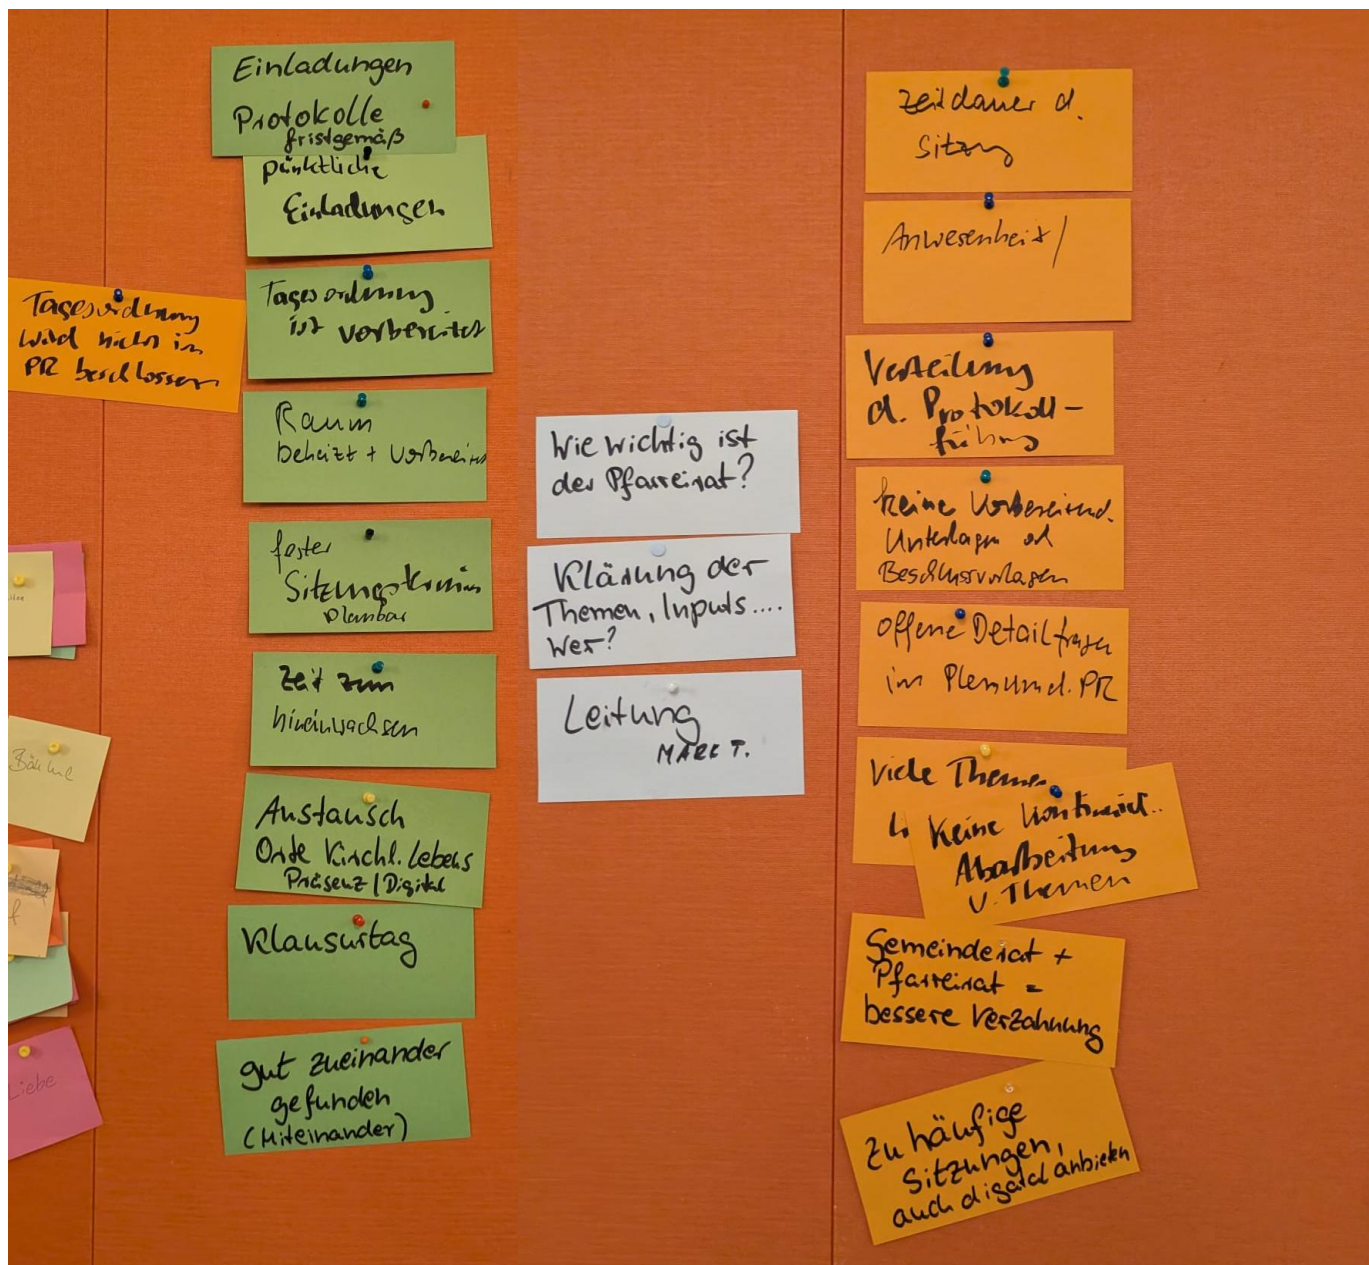 Einladungen
Protokolle
fristgemäß
pünktliche
Einladungen
Tagesordnung
wird nicht im
PR beschlossen
Tagesordnung
ist vorbereitet
Raum
beheizt + vorbereitet
fester
Sitzungstermin
planbar
Zeit zum
hineinwachsen
Austausch
Orte Kirchl. Lebens
Präsenz / Digital
Klausurtag
gut zueinander
gefunden
(Miteinander)
Wie wichtig ist
der Pfarreirat?
Klärung der
Themen, Inputs....
Wer?
Leitung
MARKT.
Zeitdauer d.
Sitzung
Anwesenheit /
Verteilung
d. Protokoll-
führung
keine Vorbereitend.
Unterlagen od
Beschlussvorlagen
offene Detailfragen
im Plenum d. PR
Viele Themen
Keine kontinuierl..
Abarbeitung
v. Themen
Gemeinderat +
Pfarreirat =
bessere Verzahnung
Zu häufige
Sitzungen,
auch digital anbieten
Liebe